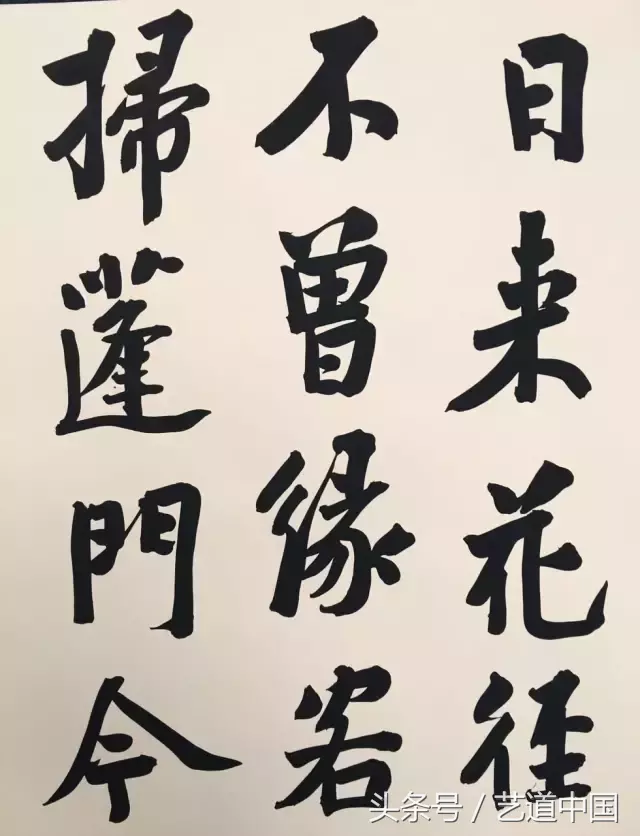 日来花径
不曾緣客
掃蓬門今
头条号／艺道中国